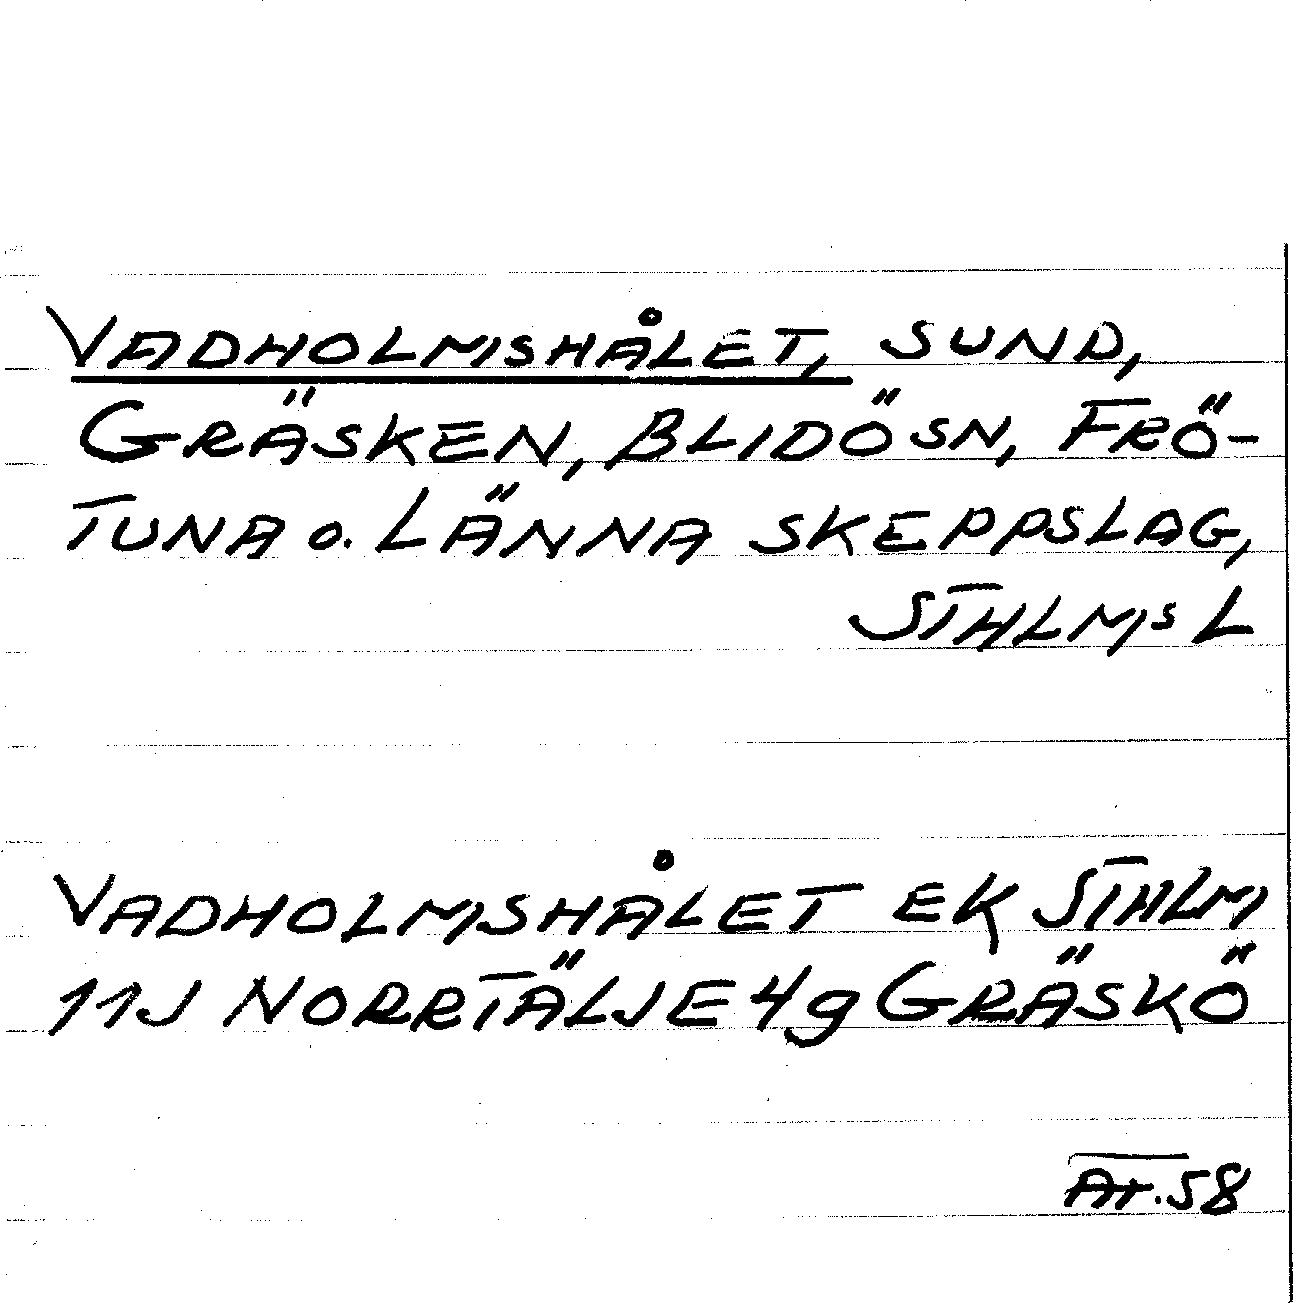 VADHOLMSHÅLET, SUND,
GRÄSKEN, BLIDÖ SN, FRÖ-
TUNA O. LÄNNA SKEPPSLAG,
STHLMS L
VADHOLMSHÅLET EK STHLM
11J NORRTÄLJE 4g GRÄSKÖ
AT.58